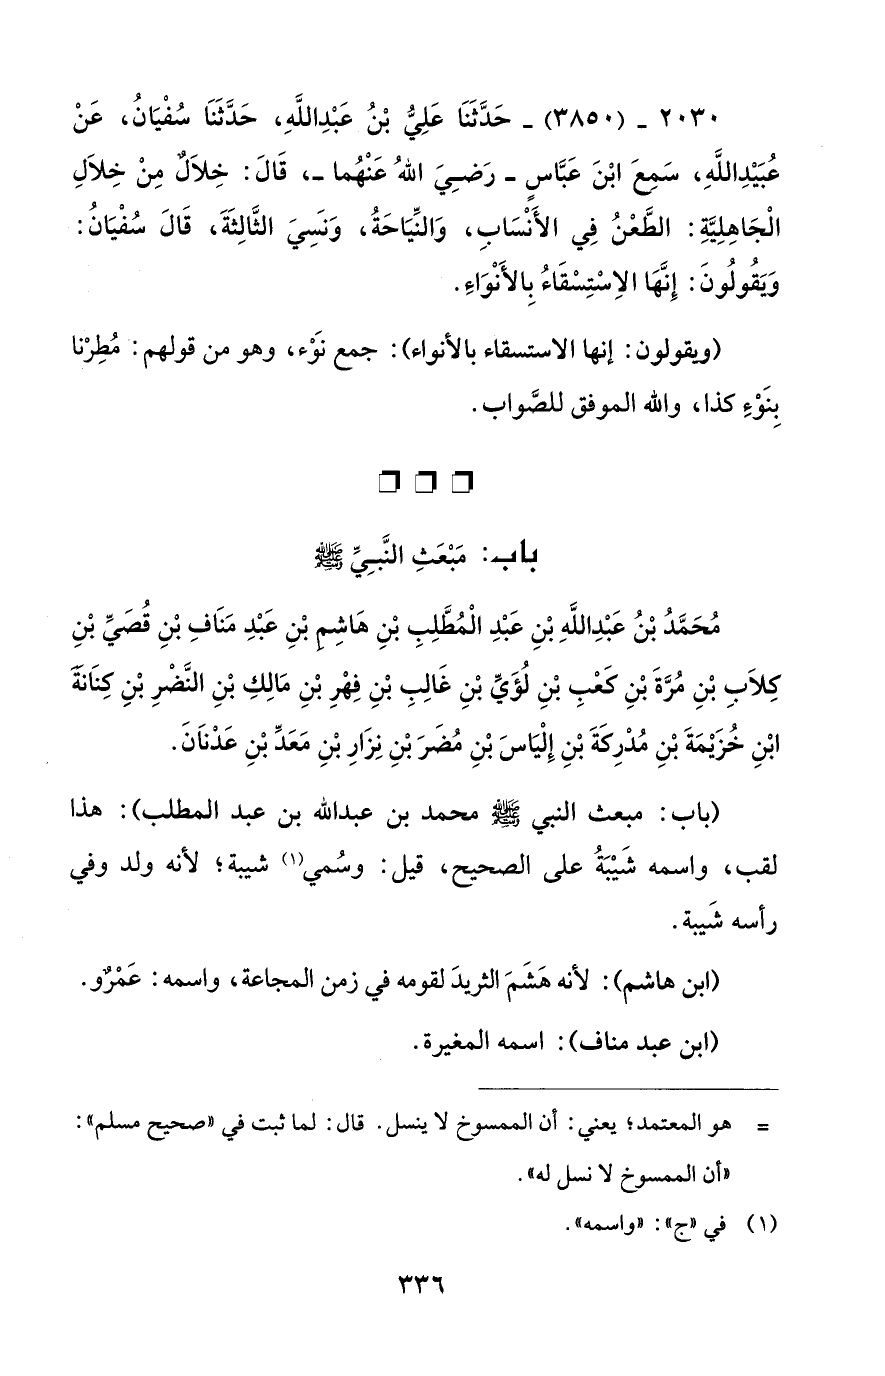 ٢٠٣٠ - (٣٨٥٠) - حَدَّثَنَا عَلِيُّ بْنُ عَبْدِاللَّهِ، حَدَّثَنَا سُفْيَانُ، عَنْ
عُبَيْدِاللَّهِ، سَمِعَ ابْنَ عَبَّاسٍ - رَضِيَ اللهُ عَنْهُما -، قَالَ: خِلاَلٌ مِنْ خِلاَلِ
الْجَاهِلِيَّةِ: الطَّعْنُ فِي الأَنْسَابِ، وَالنِّيَاحَةُ، وَنَسِيَ الثَّالِثَةَ، قَالَ سُفْيَانُ:
وَيَقُولُونَ: إِنَّهَا الاِسْتِسْقَاءُ بِالأَنْوَاءِ.
(ويقولون: إنها الاستسقاء بالأنواء): جمع نَوْء، وهو من قولهم: مُطِرْنا
بِنَوْءِ كذا، والله الموفق للصَّواب.
❐ ❐ ❐
باب: مَبْعَثِ النَّبِيِّ ﷺ
مُحَمَّدُ بْنُ عَبْدِاللَّهِ بْنِ عَبْدِ الْمُطَّلِبِ بْنِ هَاشِمِ بْنِ عَبْدِ مَنَافِ بْنِ قُصَيِّ بْنِ
كِلاَبِ بْنِ مُرَّةَ بْنِ كَعْبِ بْنِ لُؤَيِّ بْنِ غَالِبِ بْنِ فِهْرِ بْنِ مَالِكِ بْنِ النَّضْرِ بْنِ كِنَانَةَ
ابْنِ خُزَيْمَةَ بْنِ مُدْرِكَةَ بْنِ إِلْيَاسَ بْنِ مُضَرَ بْنِ نِزَارِ بْنِ مَعَدِّ بْنِ عَدْنَانَ.
(باب: مبعث النبي ﷺ محمد بن عبدالله بن عبد المطلب): هذا
لقب، واسمه شَيْبَةُ على الصحيح، قيل: وسُمي(١) شيبة؛ لأنه ولد وفي
رأسه شَيبة.
(ابن هاشم): لأنه هَشَمَ الثريدَ لقومه في زمن المجاعة، واسمه: عَمْرٌو.
(ابن عبد مناف): اسمه المغيرة.
= هو المعتمد؛ يعني: أن الممسوخ لا ينسل. قال: لما ثبت في «صحيح مسلم»:
«أن الممسوخ لا نسل له».
(١) في «ج»: «واسمه».
٣٣٦